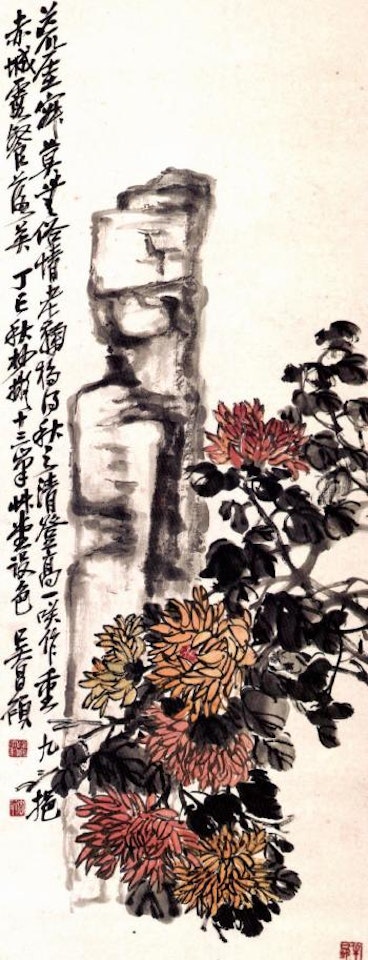 荒崖寂莫無俗情老鞠獨得秋之清登高一咲作重九挹
赤城霞餐落英 丁巳秋杪擬十三峯艸堂設色 吳昌碩